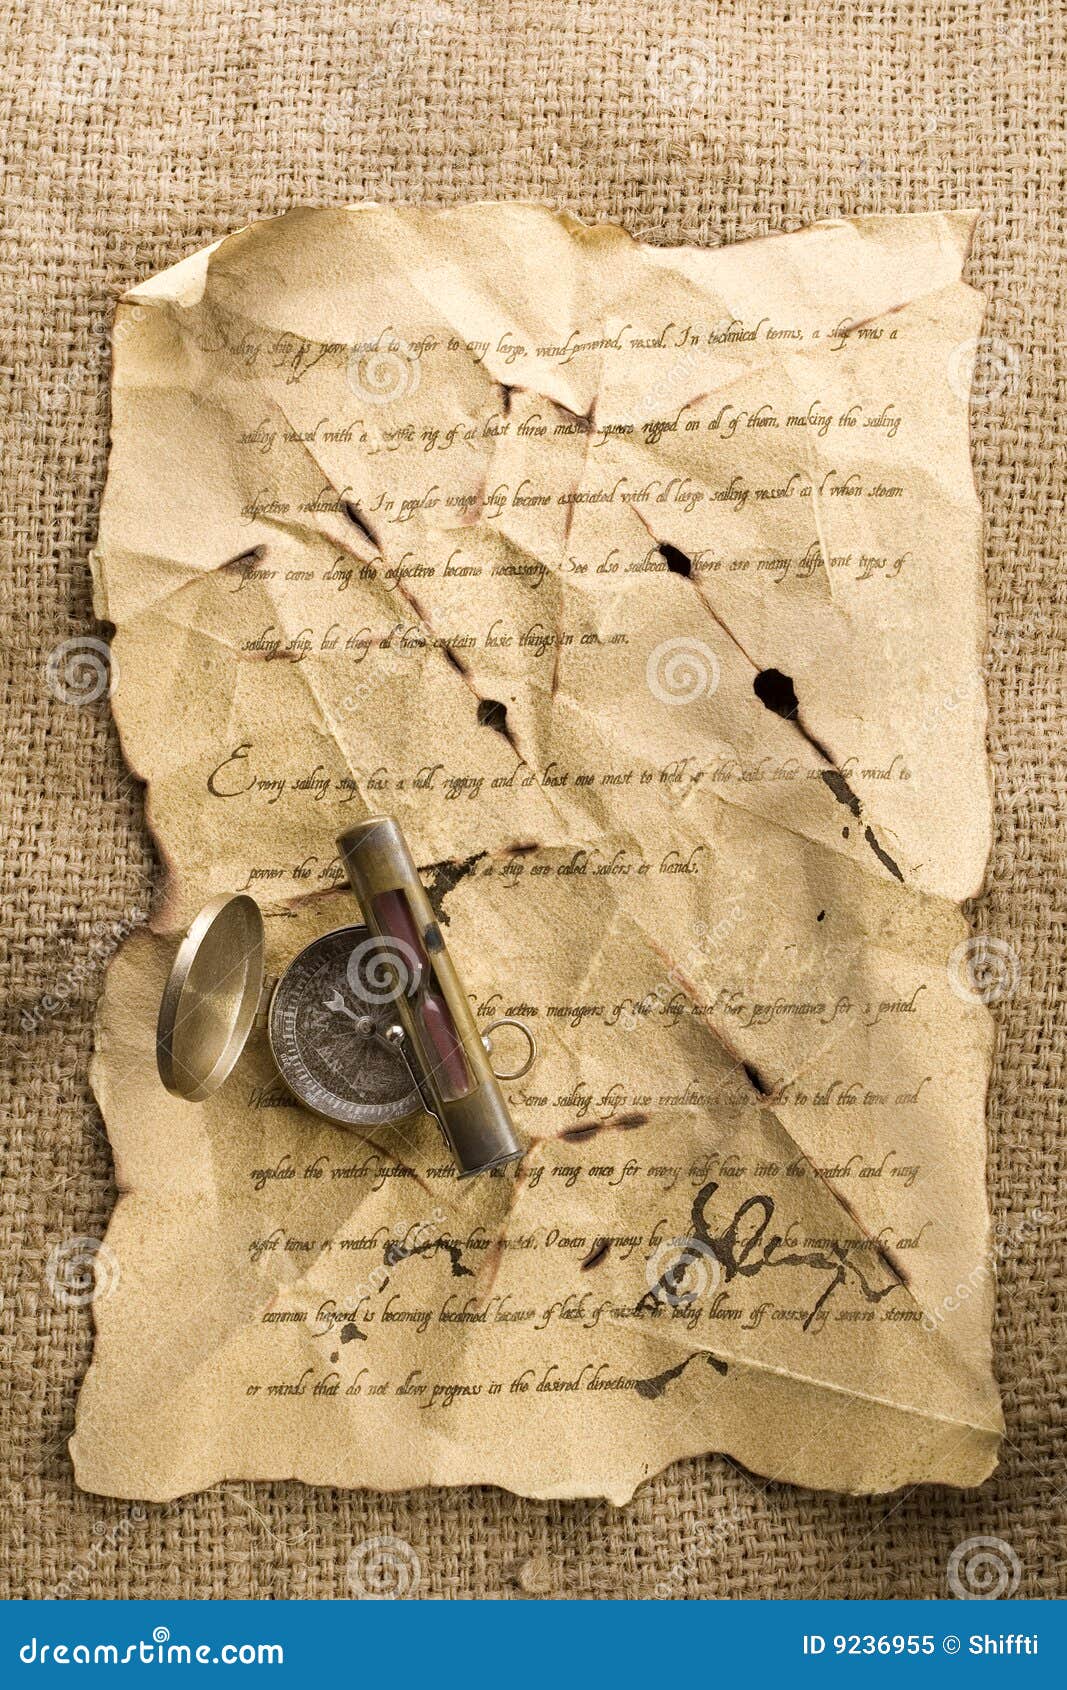 ship is now used to refer to any large, wind-powered, vessel. In technical terms, a ship was a
sailing vessel with a specific rig of at least three masts square rigged on all of them, making the sailing
adjective redundant. In popular usage ship became associated with all large sailing vessels and when steam
power came along the adjective became necessary. See also sailboat. There are many different types of
sailing ship, but they all have certain basic things in common.
Every sailing ship has a hull, rigging and at least one mast to hold up the sails that use the wind to
power the ship. a ship are called sailors or hands.
the active managers of the ship and her performance for a period.
Watches Some sailing ships use traditional to tell the time and
regulate the watch system, with rung once for every half hour into the watch and rung
eight times at watch end (a four-hour watch). Ocean journeys by can take many months, and
common hazard is becoming becalmed because of lack of wind, or being blown off course by severe storms
or winds that do not allow progress in the desired direction.
dreamstime.com
ID 9236955 © Shiffti